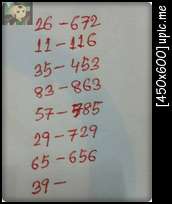 26-672
11-116
35-453
83-863
57-785
29-729
65-656
39-
[450x600] upic.me